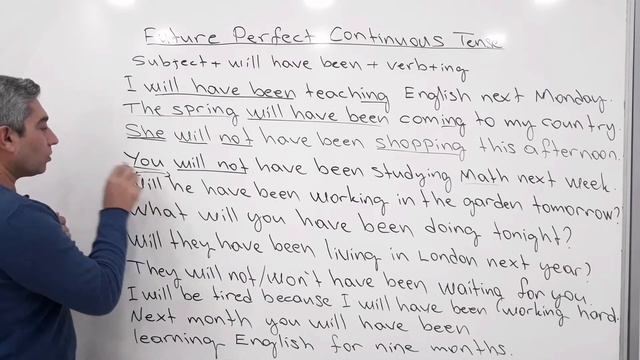 Future Perfect Continuous Tense
Subject + will have been + verb+ing
I will have been teaching English next Monday.
The spring will have been coming to my country.
She will not have been shopping this afternoon.
You will not have been studying Math next week.
Will he have been working in the garden tomorrow?
What will you have been doing tonight?
Will they have been living in London next year?
They will not/won't have been waiting for you.
I will be tired because I will have been working hard.
Next month you will have been
learning English for nine months.